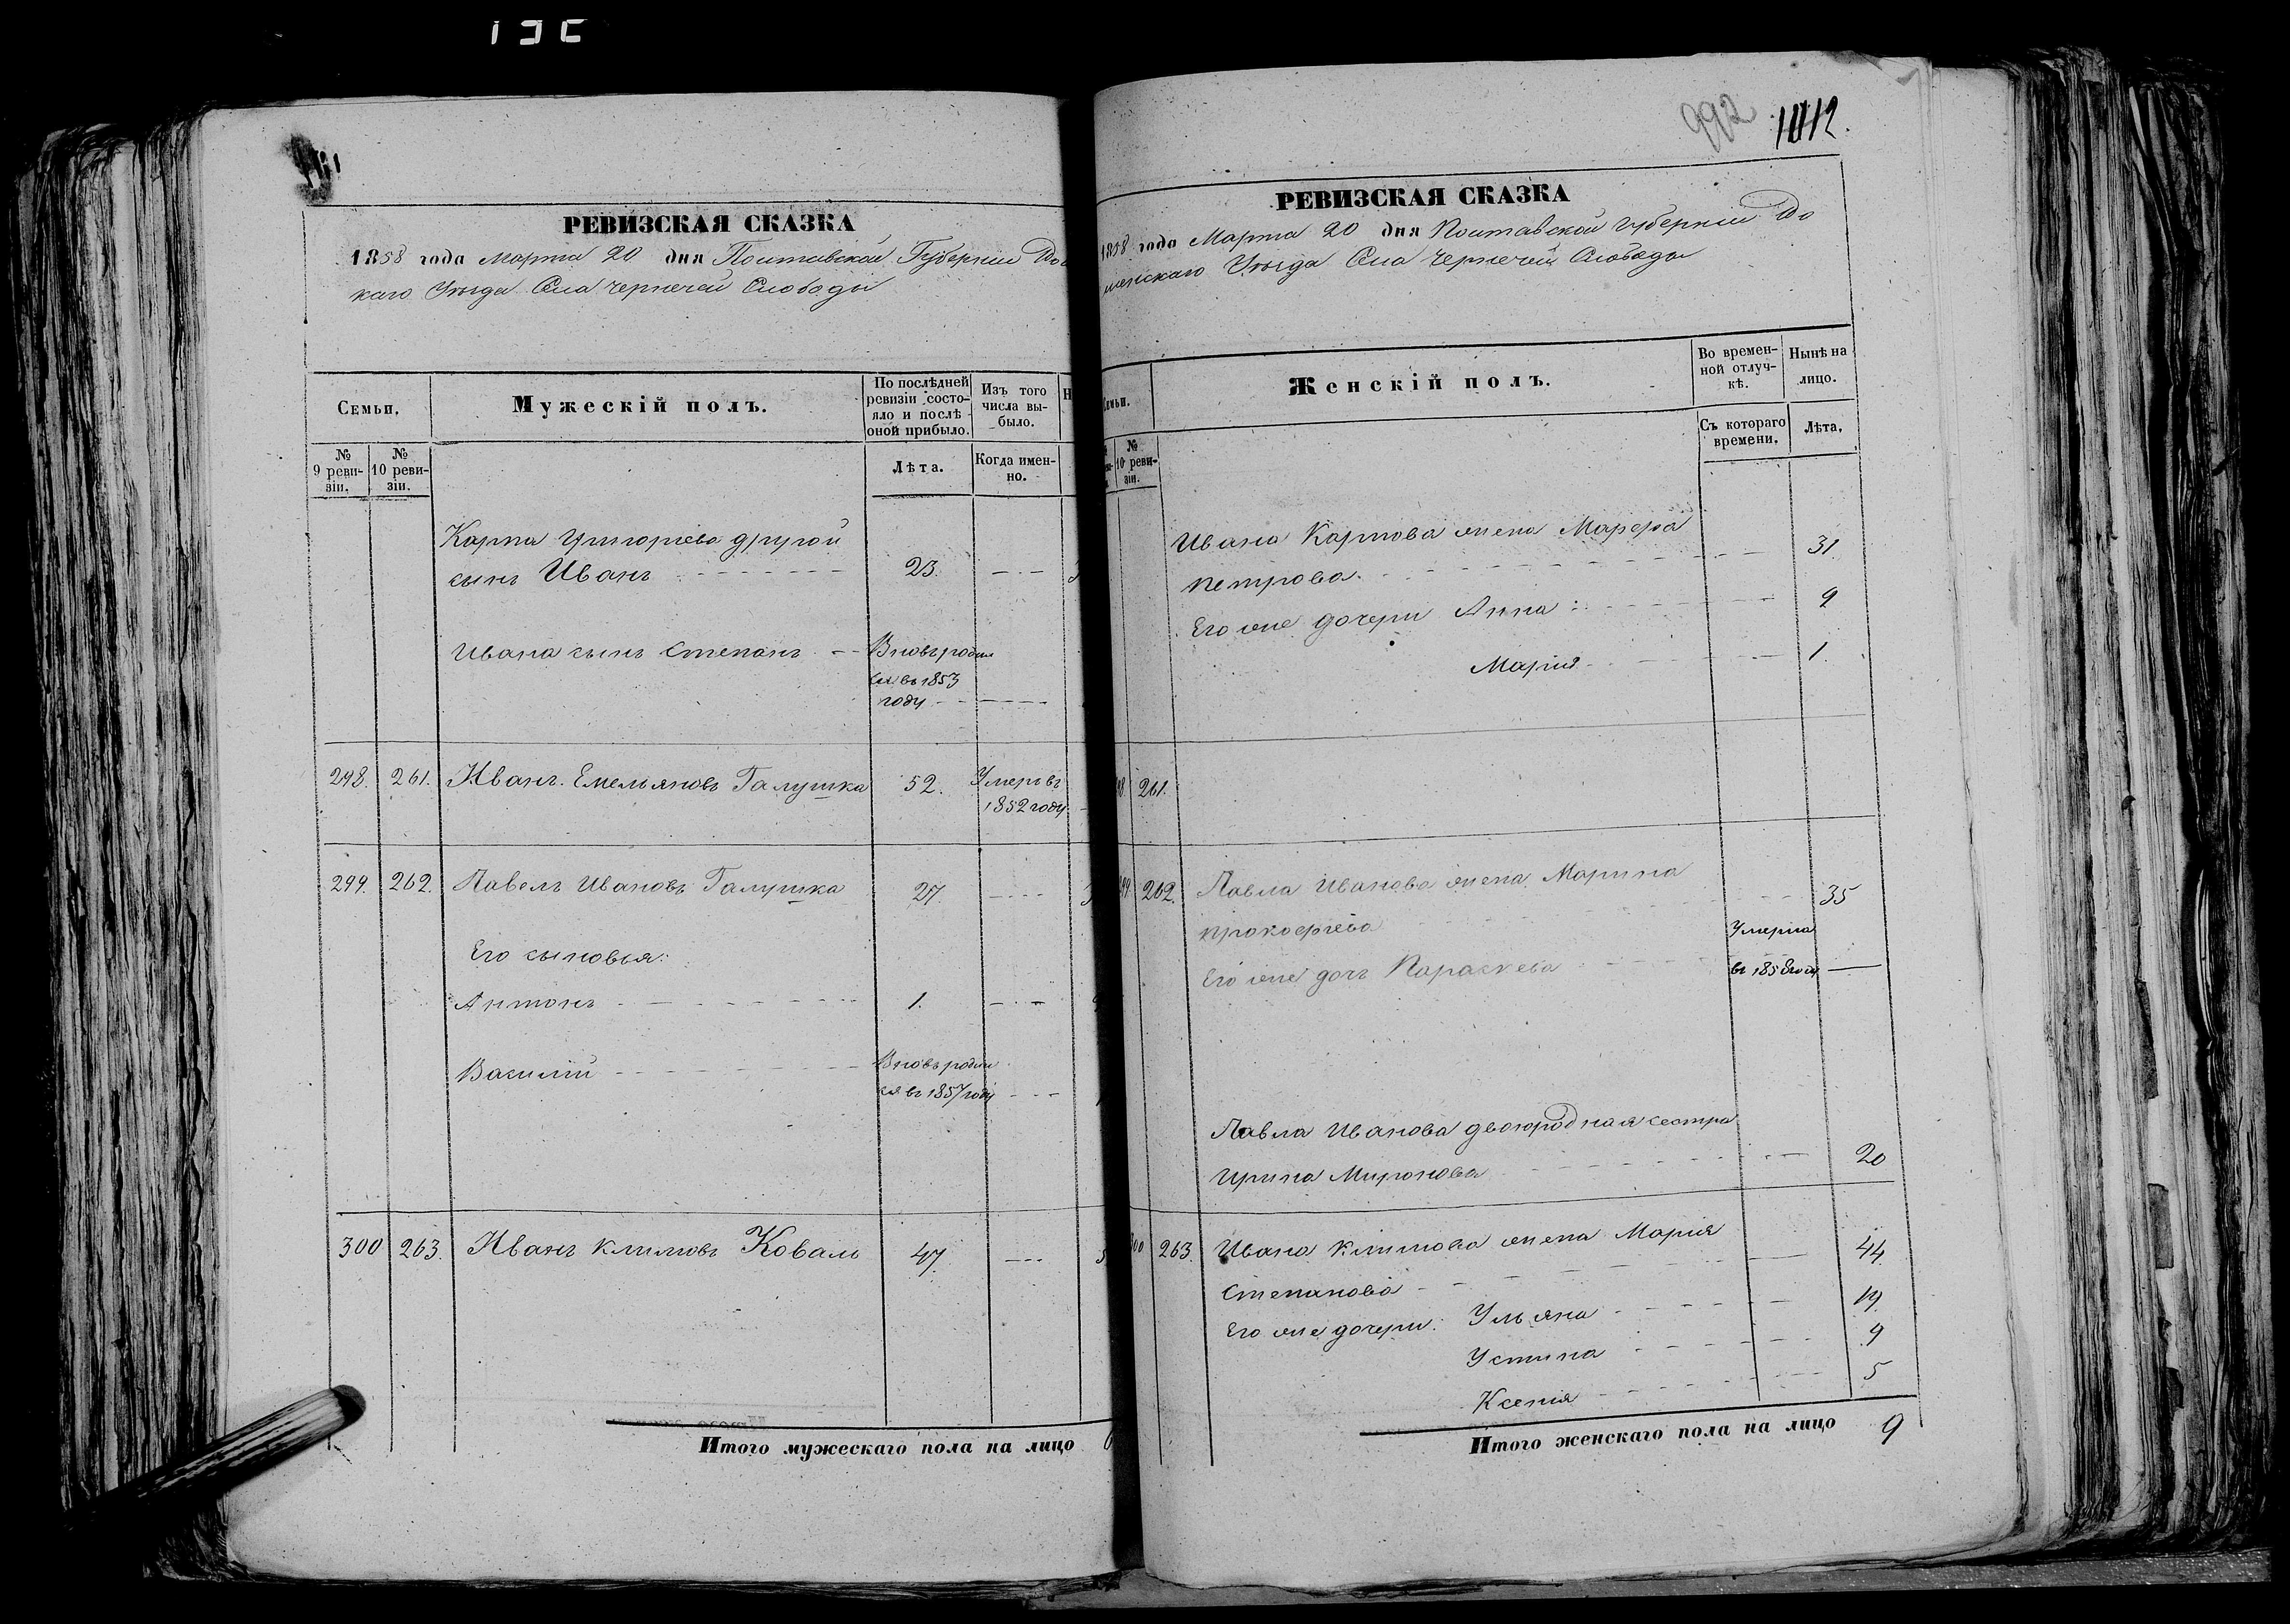 992 1012.
РЕВИЗСКАЯ СКАЗКА
1858 года Марта 20 дня Полтавской Губернии
каго Уезда Села Чернечей Слободы
Семьи.
Мужескій полъ.
По послѣдней ревизіи состояло и послѣ оной прибыло.
Изъ того числа выбыло.
№ 9 ревизіи.
№ 10 ревизіи.
Лѣта.
Когда именно.
Карпа Григорьева другой
сынъ Иванъ 23.
Ивана сынъ Степанъ Вновь родил
ся въ 1853
году
298. 261. Иванъ Емельяновъ Галушка 52. Умеръ въ
1852 году
299. 262. Павелъ Ивановъ Галушка 27.
Его сыновья:
Антонъ 1.
Василій Вновь родил
ся въ 1857 году
300 263. Иванъ Климовъ Коваль 47
Итого мужескаго пола на лицо
РЕВИЗСКАЯ СКАЗКА
1858 года Марта 20 дня Полтавской Губерніи Ро
менскаго Уезда Села Чернечей Слободы
Женскій полъ.
Во временной отлучкѣ.
Нынѣ на лицо.
№ 10 ревизіи.
Съ котораго времени.
Лѣта.
Ивана Карпова жена Марфа
Петрова 31.
Его же дочери Анна 9
Марія 1.
261.
262. Павла Иванова жена Марина
Прокофьева 35
Его же дочь Параскева Умерла
въ 1858 году
Павла Иванова двоюродная сестра
Ирина Миронова 20
263. Ивана Климова жена Марія
Степанова 44.
Его же дочери: Ульяна 19.
Устина 9
Ксенія 5
Итого женскаго пола на лицо 9